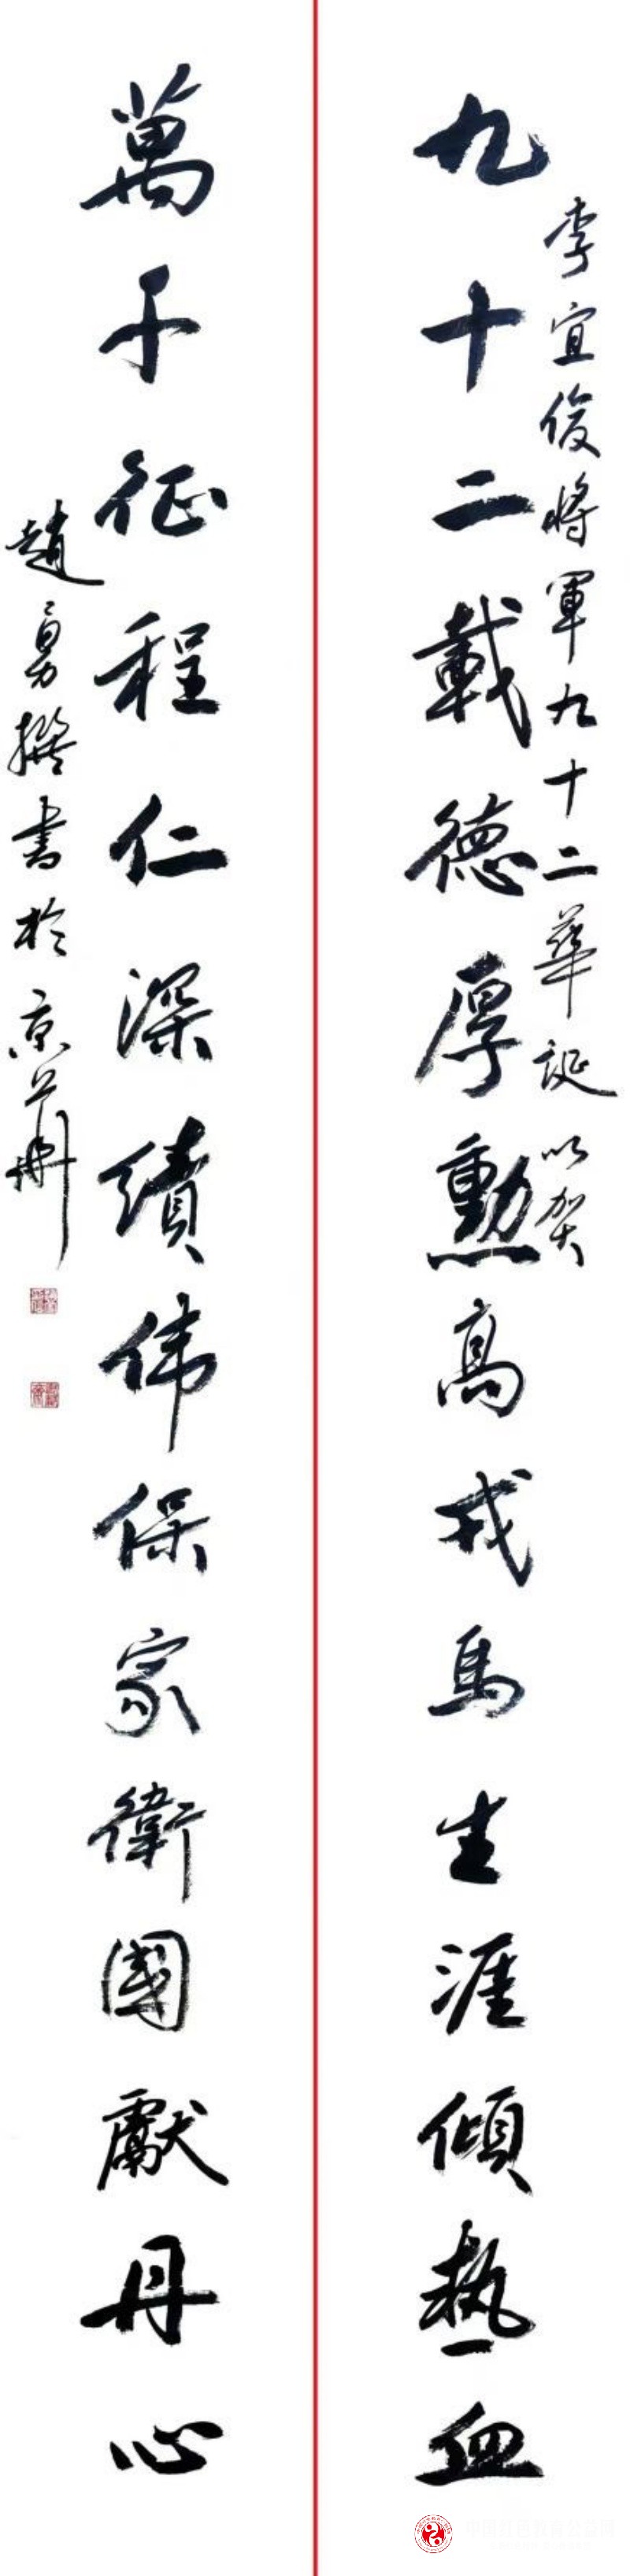 李宜俊將軍九十二華誕以贺
九十二載德厚勳高戎馬生涯傾熱血
萬千征程仁深績伟保家衛國獻丹心
趙勇撰書於京华